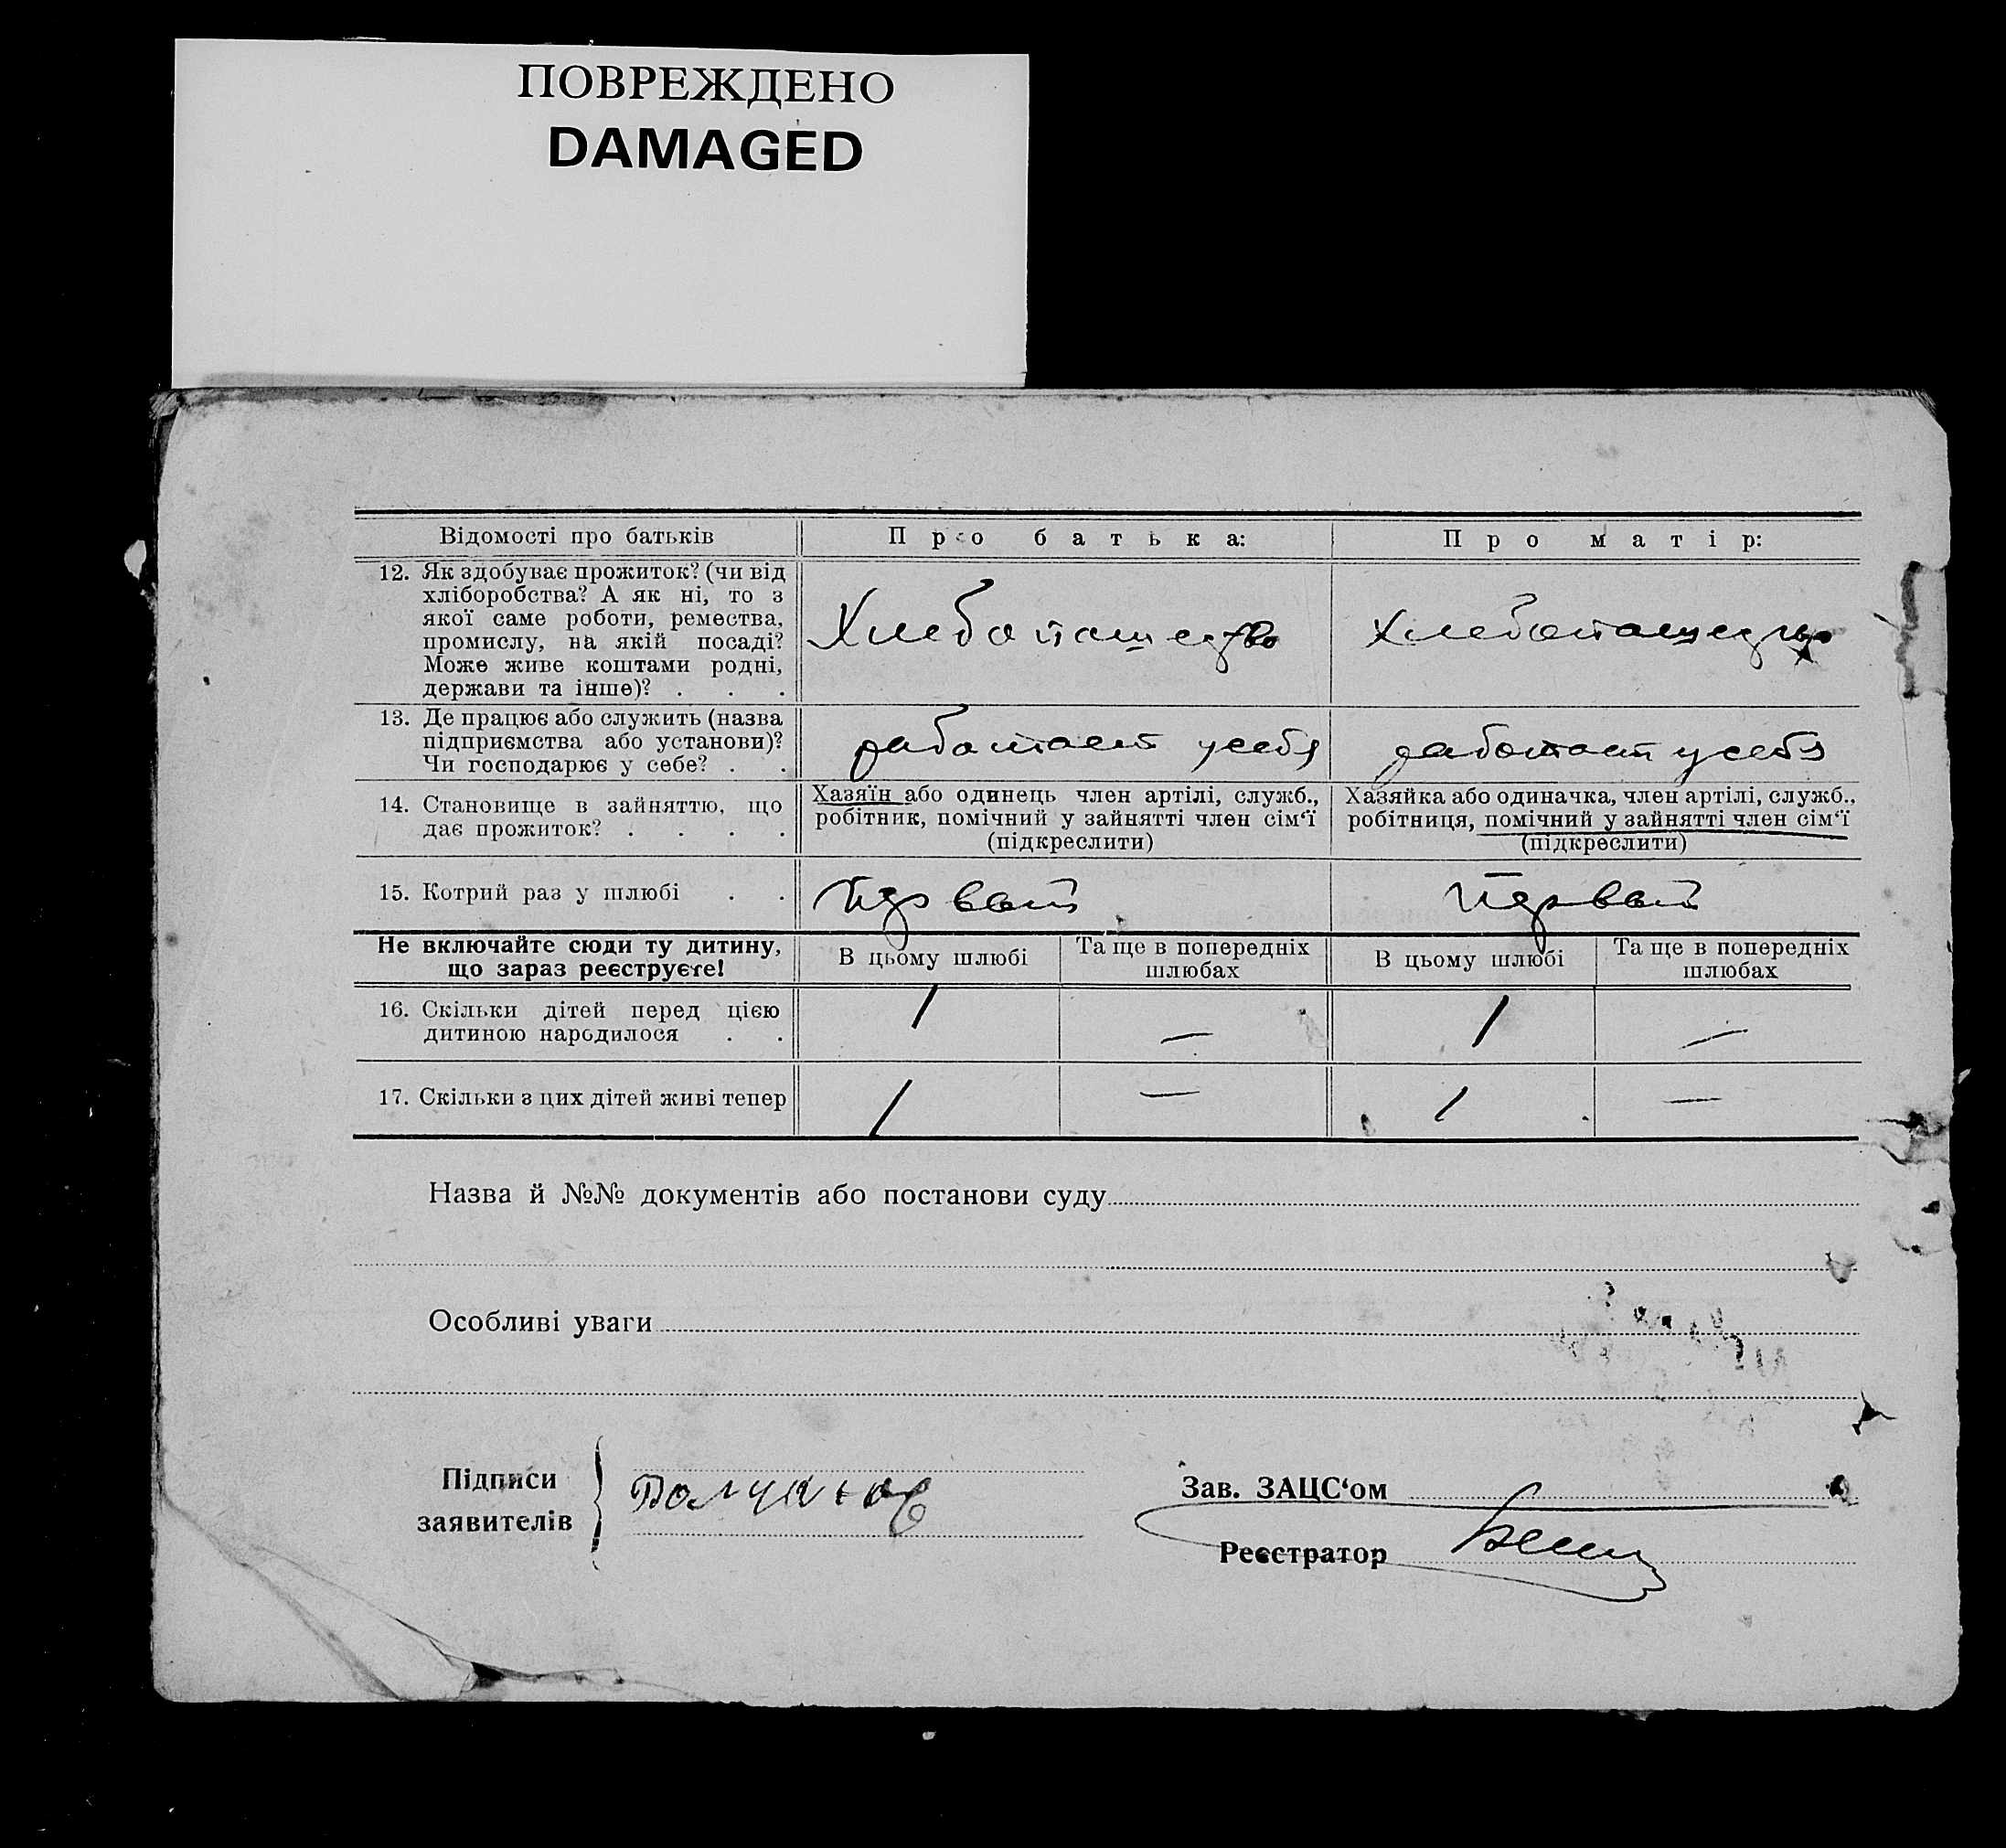 ПОВРЕЖДЕНО
DAMAGED
Відомості про батьків
Про батька:
Про матір:
12. Як здобуває прожиток? (чи від
хліборобства? А як ні, то з
якої саме роботи, ремества,
промислу, на якій посаді?
Може живе коштами родні,
держави та інше)? . . .
Хлебопашество
Хлебопашество
13. Де працює або служить (назва
підприємства або установи)?
Чи господарює у себе? . .
работает у себя
работает у себя
14. Становище в зайняттю, що
дає прожиток? . . . .
Хазяїн або одинець член артілі, служб.,
робітник, помічний у зайнятті член сім‘ї
(підкреслити)
Хазяйка або одиначка, член артілі, служб.,
робітниця, помічний у зайнятті член сім‘ї
(підкреслити)
15. Котрий раз у шлюбі . .
Первый
Первый
Не включайте сюди ту дитину,
що зараз реєструєте!
В цьому шлюбі
Та ще в попередніх
шлюбах
В цьому шлюбі
Та ще в попередніх
шлюбах
16. Скільки дітей перед цією
дитиною народилося . .
1
—
1
—
17. Скільки з цих дітей живі тепер
1
—
1
—
Назва й №№ документів або постанови суду
Особливі уваги
Підписи
заявителів
Зав. ЗАЦС‘ом
Реєстратор